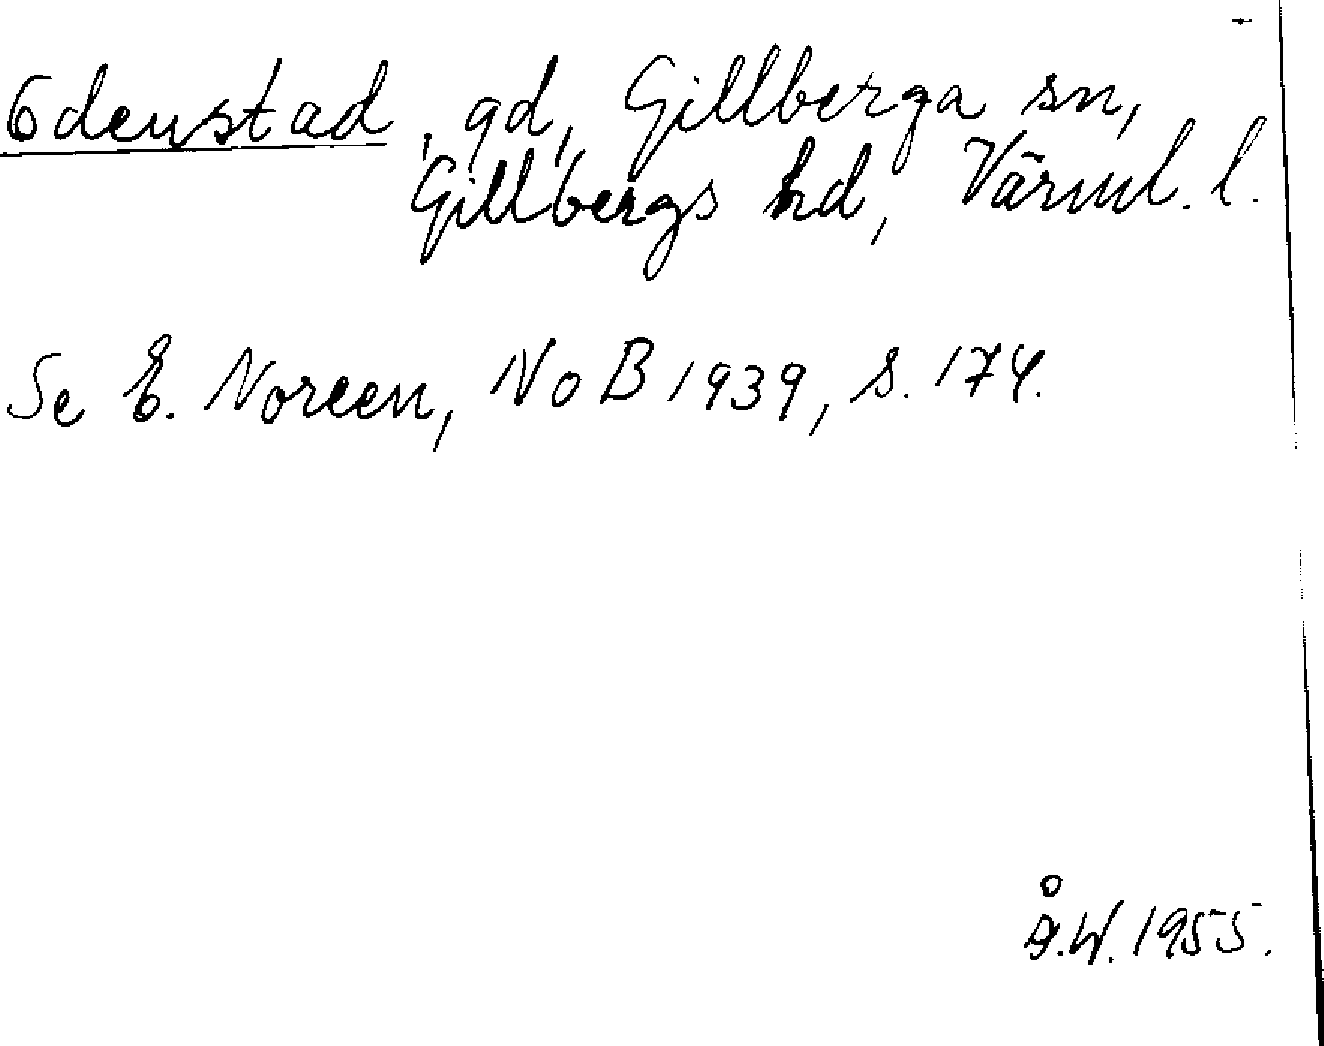 Edenstad, gd, Gillberga sn,
Gillbergs hd, Värml. l.
Se E. Noreen, NoB 1939, s. 174.
Å.W. 1955.